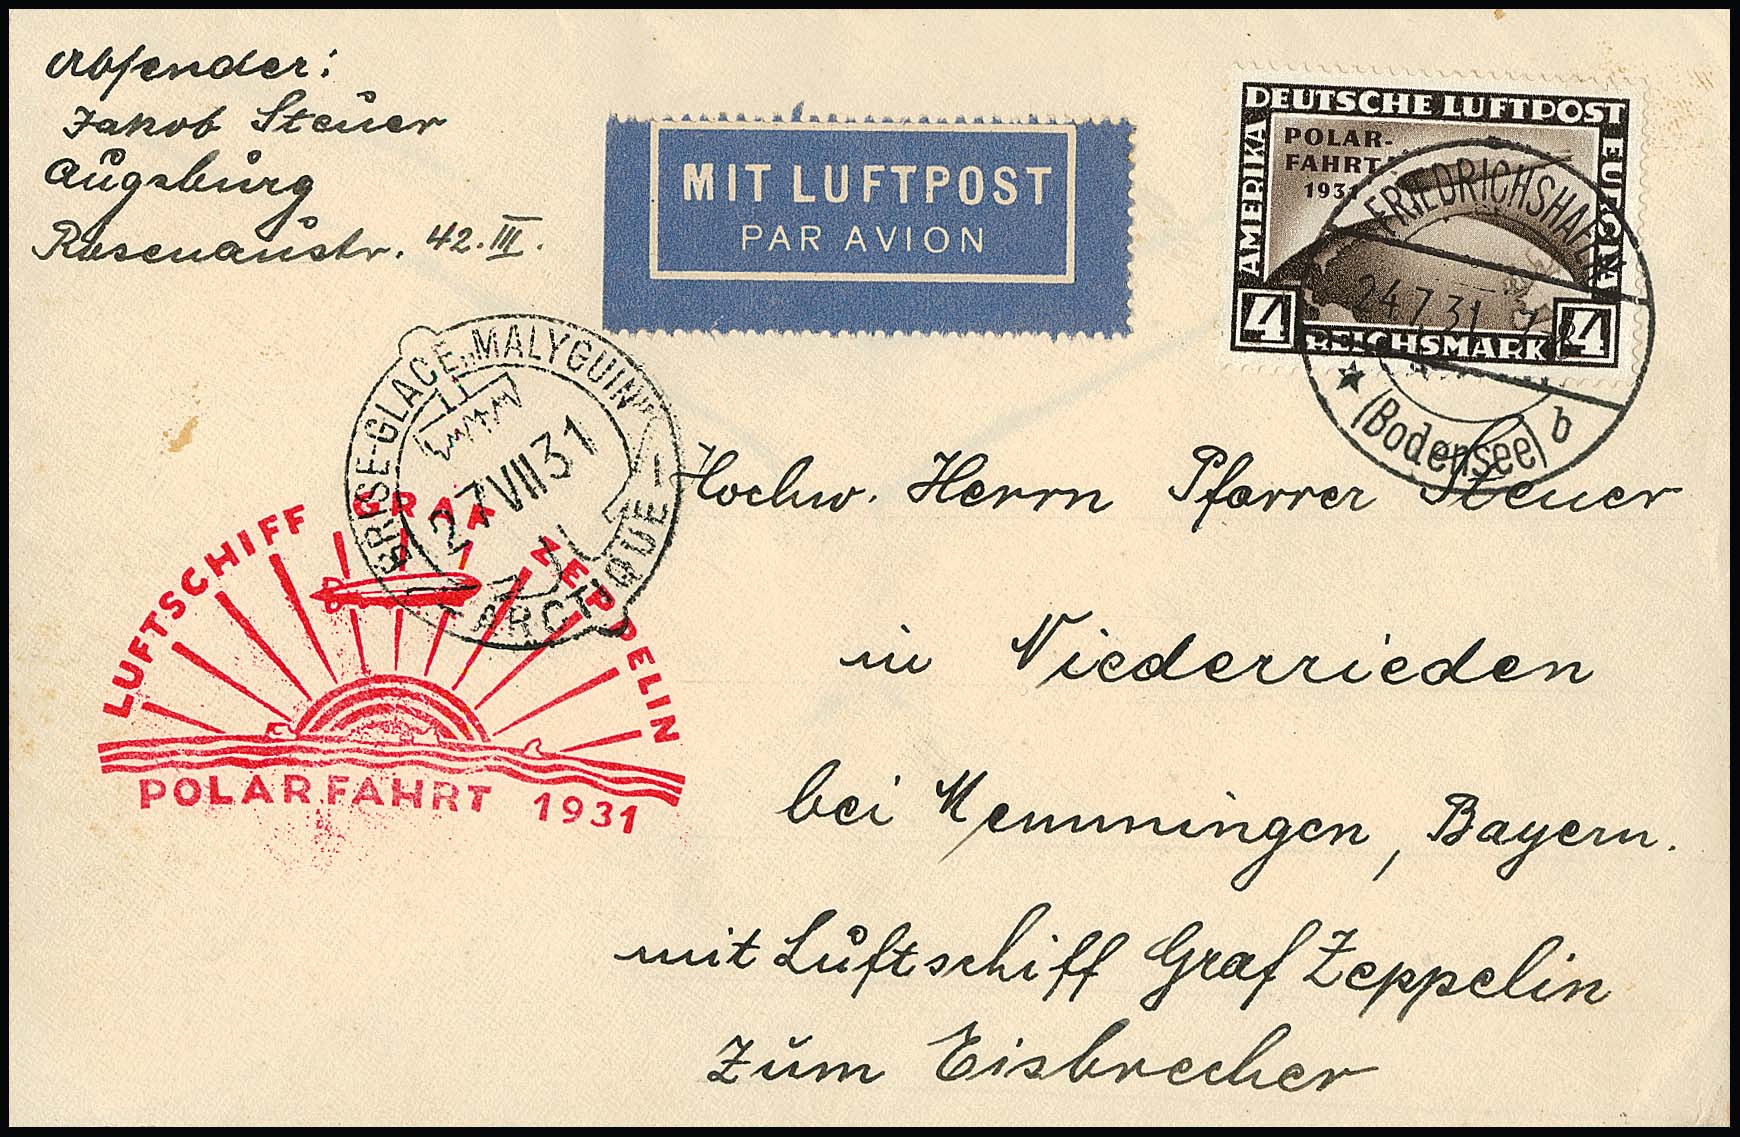 Absender:
Jakob Steuer
Augsburg
Rosenaustr. 42.III.
MIT LUFTPOST
PAR AVION
DEUTSCHE LUFTPOST
AMERIKA
EUROPA
POLAR-
FAHRT
1931
4 REICHSMARK 4
FRIEDRICHSHAFEN
24.7.31
(Bodensee) b
BRISE-GLACE "MALYGUIN"
27 VII 31
ARCTIQUE
LUFTSCHIFF GRAF ZEPPELIN
POLARFAHRT 1931
Hochw. Herrn Pfarrer Steuer
in Niederrieden
bei Memmingen, Bayern.
mit Luftschiff Graf Zeppelin
zum Eisbrecher